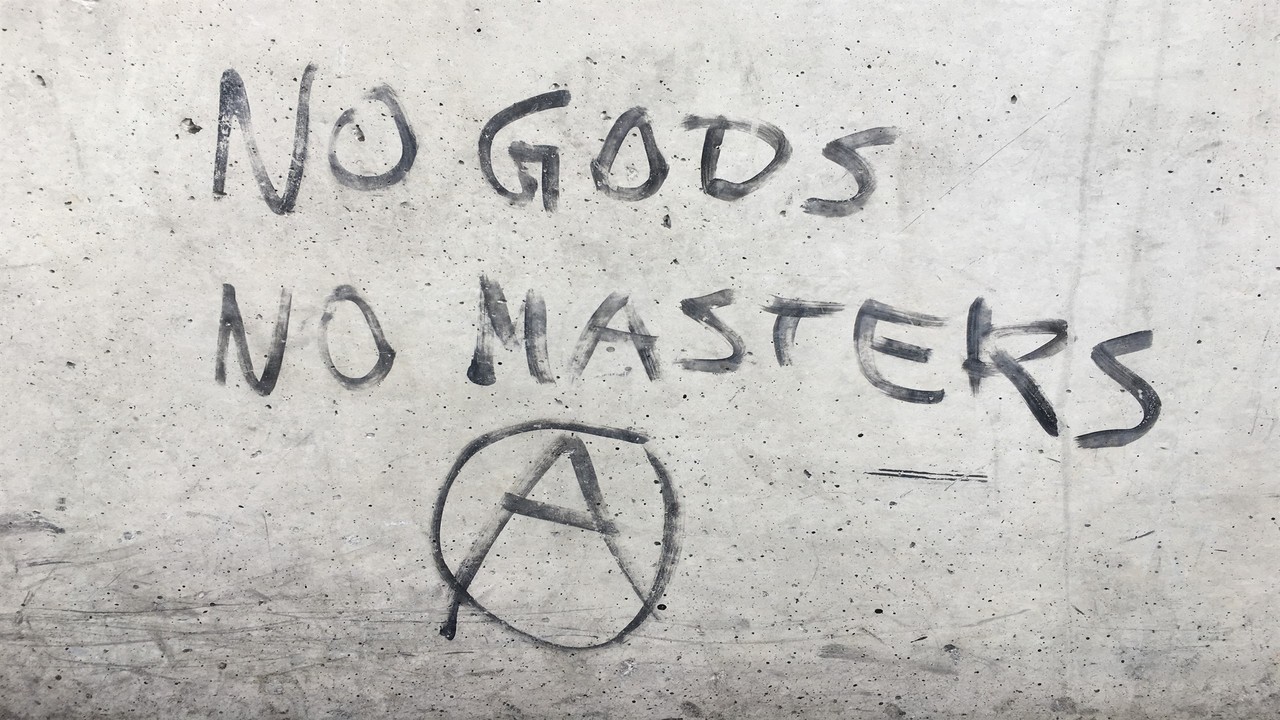 NO GODS
NO MASTERS
A